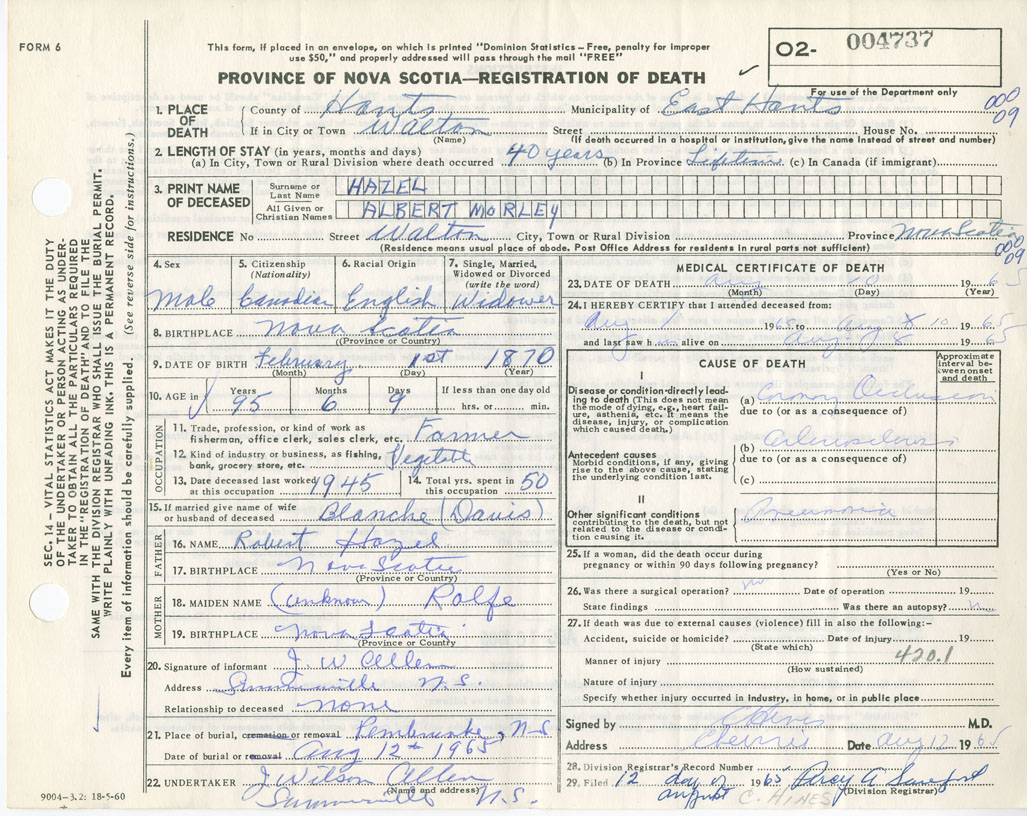 FORM 6
This form, if placed in an envelope, on which is printed "Dominion Statistics – Free, penalty for improper
use $50," and properly addressed will pass through the mail "FREE"
PROVINCE OF NOVA SCOTIA—REGISTRATION OF DEATH
O2- 004737
For use of the Department only
000
09
1. PLACE OF DEATH
County of Hants Municipality of East Hants
If in City or Town Walton Street House No.
(Name) (If death occurred in a hospital or institution, give the name instead of street and number)
2. LENGTH OF STAY (in years, months and days)
(a) In City, Town or Rural Division where death occurred 40 years (b) In Province Lifetime (c) In Canada (if immigrant)
3. PRINT NAME OF DECEASED
Surname or Last Name HAZEL
All Given or Christian Names ALBERT MORLEY
RESIDENCE No Street Walton City, Town or Rural Division Province Nova Scotia
(Residence means usual place of abode. Post Office Address for residents in rural parts not sufficient)
000
09
4. Sex 5. Citizenship (Nationality) 6. Racial Origin 7. Single, Married, Widowed or Divorced (write the word)
Male Canadian English Widower
8. BIRTHPLACE Nova Scotia
(Province or Country)
9. DATE OF BIRTH February 1st 1870
(Month) (Day) (Year)
10. AGE in Years Months Days If less than one day old
95 6 9 hrs. or min.
OCCUPATION
11. Trade, profession, or kind of work as
fisherman, office clerk, sales clerk, etc. Farmer
12. Kind of industry or business, as fishing,
bank, grocery store, etc. Vegetable
13. Date deceased last worked at this occupation 1945
14. Total yrs. spent in this occupation 50
15. If married give name of wife
or husband of deceased Blanche (Davis)
FATHER
16. NAME Robert Hazel
17. BIRTHPLACE Nova Scotia
(Province or Country)
MOTHER
18. MAIDEN NAME (unknown) Rolfe
19. BIRTHPLACE Nova Scotia
(Province or Country
20. Signature of informant J. W Allen
Address N.S.
Relationship to deceased none
21. Place of burial, cremation or removal Pembroke, N-S
Date of burial or removal Aug 12th 1965
22. UNDERTAKER J Wilson Allen
(Name and address)
Summerville N.S.
9004-3.2: 18-5-60
MEDICAL CERTIFICATE OF DEATH
23. DATE OF DEATH Aug 10 19 65
(Month) (Day) (Year)
24. I HEREBY CERTIFY that I attended deceased from:
Aug 1 1965 to Aug 10 19 65
and last saw h im alive on Aug 8 19 65
CAUSE OF DEATH
Approximate interval between onset and death
I
Disease or condition directly leading to death (This does not mean the mode of dying, e.g., heart failure, asthenia, etc. It means the disease, injury, or complication which caused death.)
(a) Coronary Occlusion
due to (or as a consequence of)
Antecedent causes
Morbid conditions, if any, giving rise to the above cause, stating the underlying condition last.
(b)
due to (or as a consequence of)
(c)
II
Other significant conditions
contributing to the death, but not related to the disease or condition causing it.
Pneumonia
25. If a woman, did the death occur during
pregnancy or within 90 days following pregnancy?
(Yes or No)
26. Was there a surgical operation? no Date of operation 19
State findings Was there an autopsy? no
27. If death was due to external causes (violence) fill in also the following:–
Accident, suicide or homicide? Date of injury 19
(State which)
Manner of injury 420.1
(How sustained)
Nature of injury
Specify whether injury occurred in industry, in home, or in public place
Signed by C Hines M.D.
Address Date Aug 12 1965
28. Division Registrar's Record Number
29. Filed 12 day of August 1965 Percy A
(Division Registrar)
C. HINES
SEC. 14 – VITAL STATISTICS ACT MAKES IT THE DUTY
OF THE UNDERTAKER OR PERSON ACTING AS UNDER-
TAKER TO OBTAIN ALL THE PARTICULARS REQUIRED
IN THE "REGISTRATION OF DEATH" AND TO FILE THE
SAME WITH THE DIVISION REGISTRAR WHO SHALL ISSUE THE BURIAL PERMIT.
WRITE PLAINLY WITH UNFADING INK. THIS IS A PERMANENT RECORD.
Every item of information should be carefully supplied. (See reverse side for instructions.)